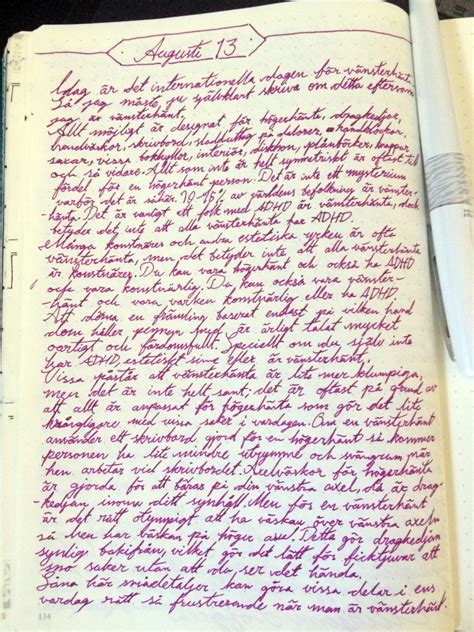 Augusti 13
Idag är det internationella dagen för vänsterhänta
Så jag måste ju självklart skriva om detta eftersom
jag är vänsterhänt.
Allt möjligt är designat för högerhänta, dragkedjor,
handväskor, skrivbord, på datorer, handklockor,
saxar, vissa interiör, diskhon, plånböcker, knappar
och så vidare. Allt som inte är helt symmetriskt är oftast till
fördel för en högerhänt person. Det är inte ett mysterium
varför det är så här. 10-15% av världens befolkning är vänster-
hänta. Det är vanligt att folk med ADHD är vänsterhänta, dock
betyder det inte att alla vänsterhänta har ADHD.
Många konstnärer och andra estetiska yrken är ofta
vänsterhänta, men det betyder inte att alla vänsterhänta
är konstnärer. Du kan vara högerhänt och också ha ADHD
och vara konstnärlig. Du kan också vara vänster-
hänt och vara varken konstnärlig eller ha ADHD.
Att döma en främling baserat endast på vilken hand
dom håller pennan med är ärligt talat mycket
oartigt och fördomsfullt. Speciellt om du själv inte
har ADHD, estetiskt sinne eller är vänsterhänt.
Vissa påstår att vänsterhänta är lite mer klumpiga,
men det är inte helt sant, det är oftast på grund av
att allt är anpassat för högerhänta som gör det lite
krångligare med vissa saker i vardagen. Om en vänsterhänt
använder ett skrivbord gjord för en högerhänt så kommer
personen ha lite mindre utrymme och svängrum när
hen arbetar vid skrivbordet. Axelväskor för högerhänta
är gjorda för att bäras på din vänstra axel, då är drag-
kedjan inom ditt synhåll. Men för en vänsterhänt
är det rätt otympligt att ha väskan över vänstra axeln
så hen har väskan på höger axel. Detta gör dragkedjan
synlig bakifrån, vilket gör det lätt för ficktjuvar att
sno saker utan att du ser det hända.
Såna här smådetaljer kan göra vissa delar i ens
vardag rätt så frustrerande när man är vänsterhänt.
134